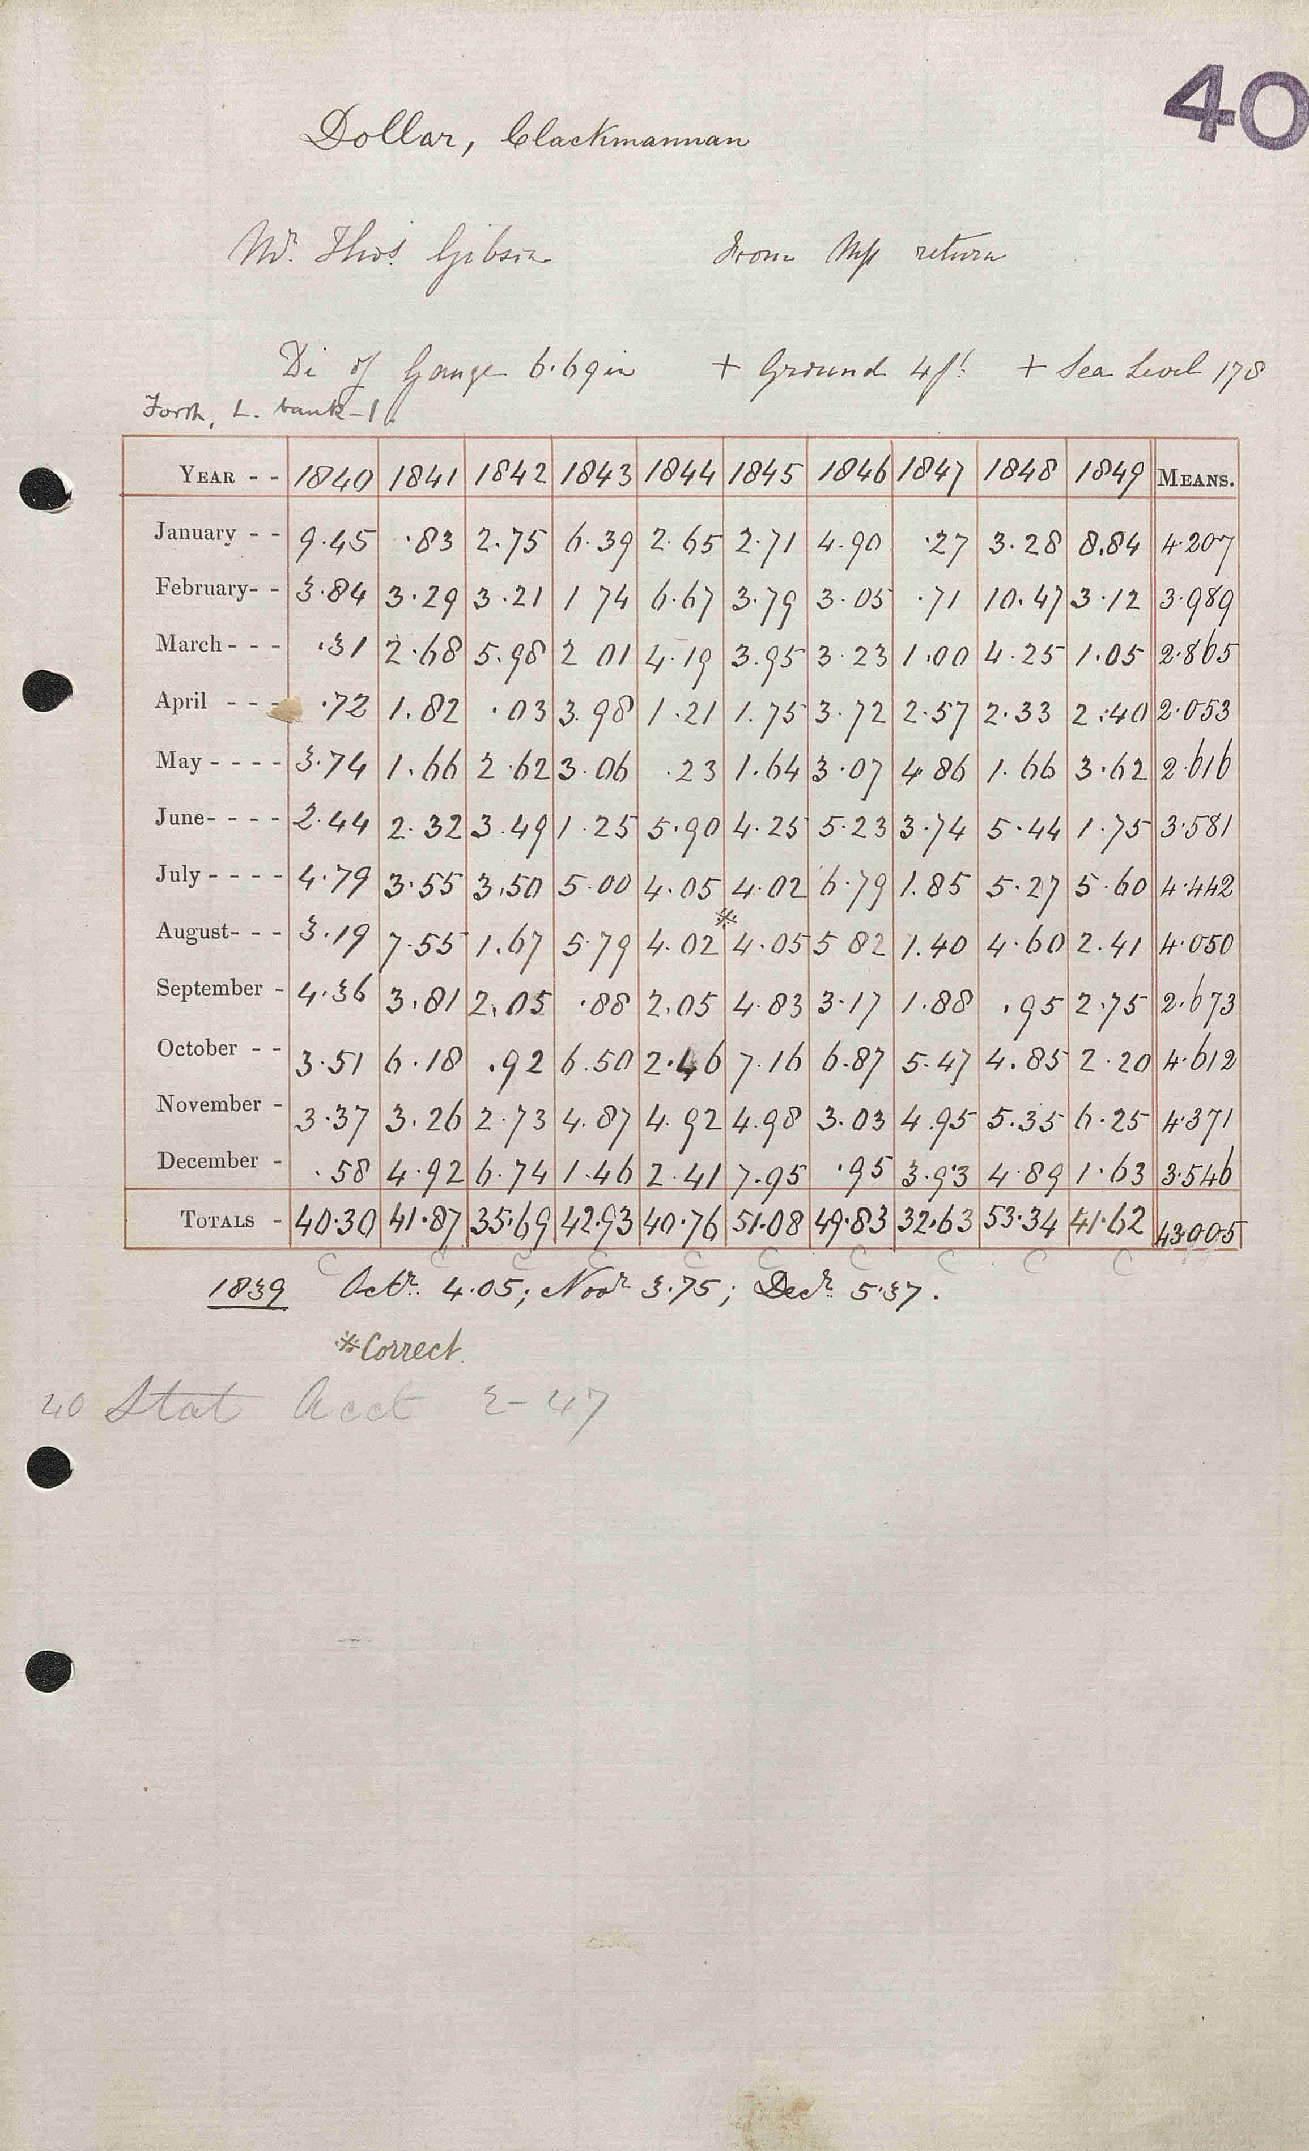 40
Dollar, Clackmannan
Mr. Thos. Gibson From MS return
Di of Gauge 6.69 in + Ground 4 ft. + Sea Level 178
Forth, L. bank - 1
YEAR - - 1840 1841 1842 1843 1844 1845 1846 1847 1848 1849 MEANS.
January - - 9.45 .83 2.75 6.39 2.65 2.71 4.90 .27 3.28 8.84 4.207
February- - 3.84 3.29 3.21 1 74 6.67 3.79 3.05 .71 10.47 3.12 3.989
March - - - .31 2.68 5.98 2 01 4.19 3.95 3.23 1.00 4.25 1.05 2.865
April - - - .72 1.82 .03 3.98 1.21 1.75 3.72 2.57 2.33 2.40 2.053
May - - - - 3.74 1.66 2.62 3.06 .23 1.64 3.07 4.86 1.66 3.62 2.616
June- - - - 2.44 2.32 3.49 1.25 5.90 4.25 5.23 3.74 5.44 1.75 3.581
July - - - - 4.79 3.55 3.50 5.00 4.05 4.02 6.79 1.85 5.27 5.60 4.442
August- - - 3.19 7.55 1.67 5.79 4.02 * 4.05 5 82 1.40 4.60 2.41 4.050
September - 4.36 3.81 2.05 .88 2.05 4.83 3.17 1.88 .95 2.75 2.673
October - - 3.51 6.18 .92 6.50 2.46 7.16 6.87 5.47 4.85 2.20 4.612
November - 3.37 3.26 2.73 4.87 4.92 4.98 3.03 4.95 5.35 6.25 4.371
December - .58 4.92 6.74 1.46 2.41 7.95 .95 3.93 4.89 1.63 3.546
TOTALS - 40.30 41.87 35.69 42.93 40.76 51.08 49.83 32.63 53.34 41.62 43.005
C C C C C C C C C C
1839 Octr. 4.05; Novr 3.75; Decr. 5.37.
*Correct.
40 Stat Acct 2-47